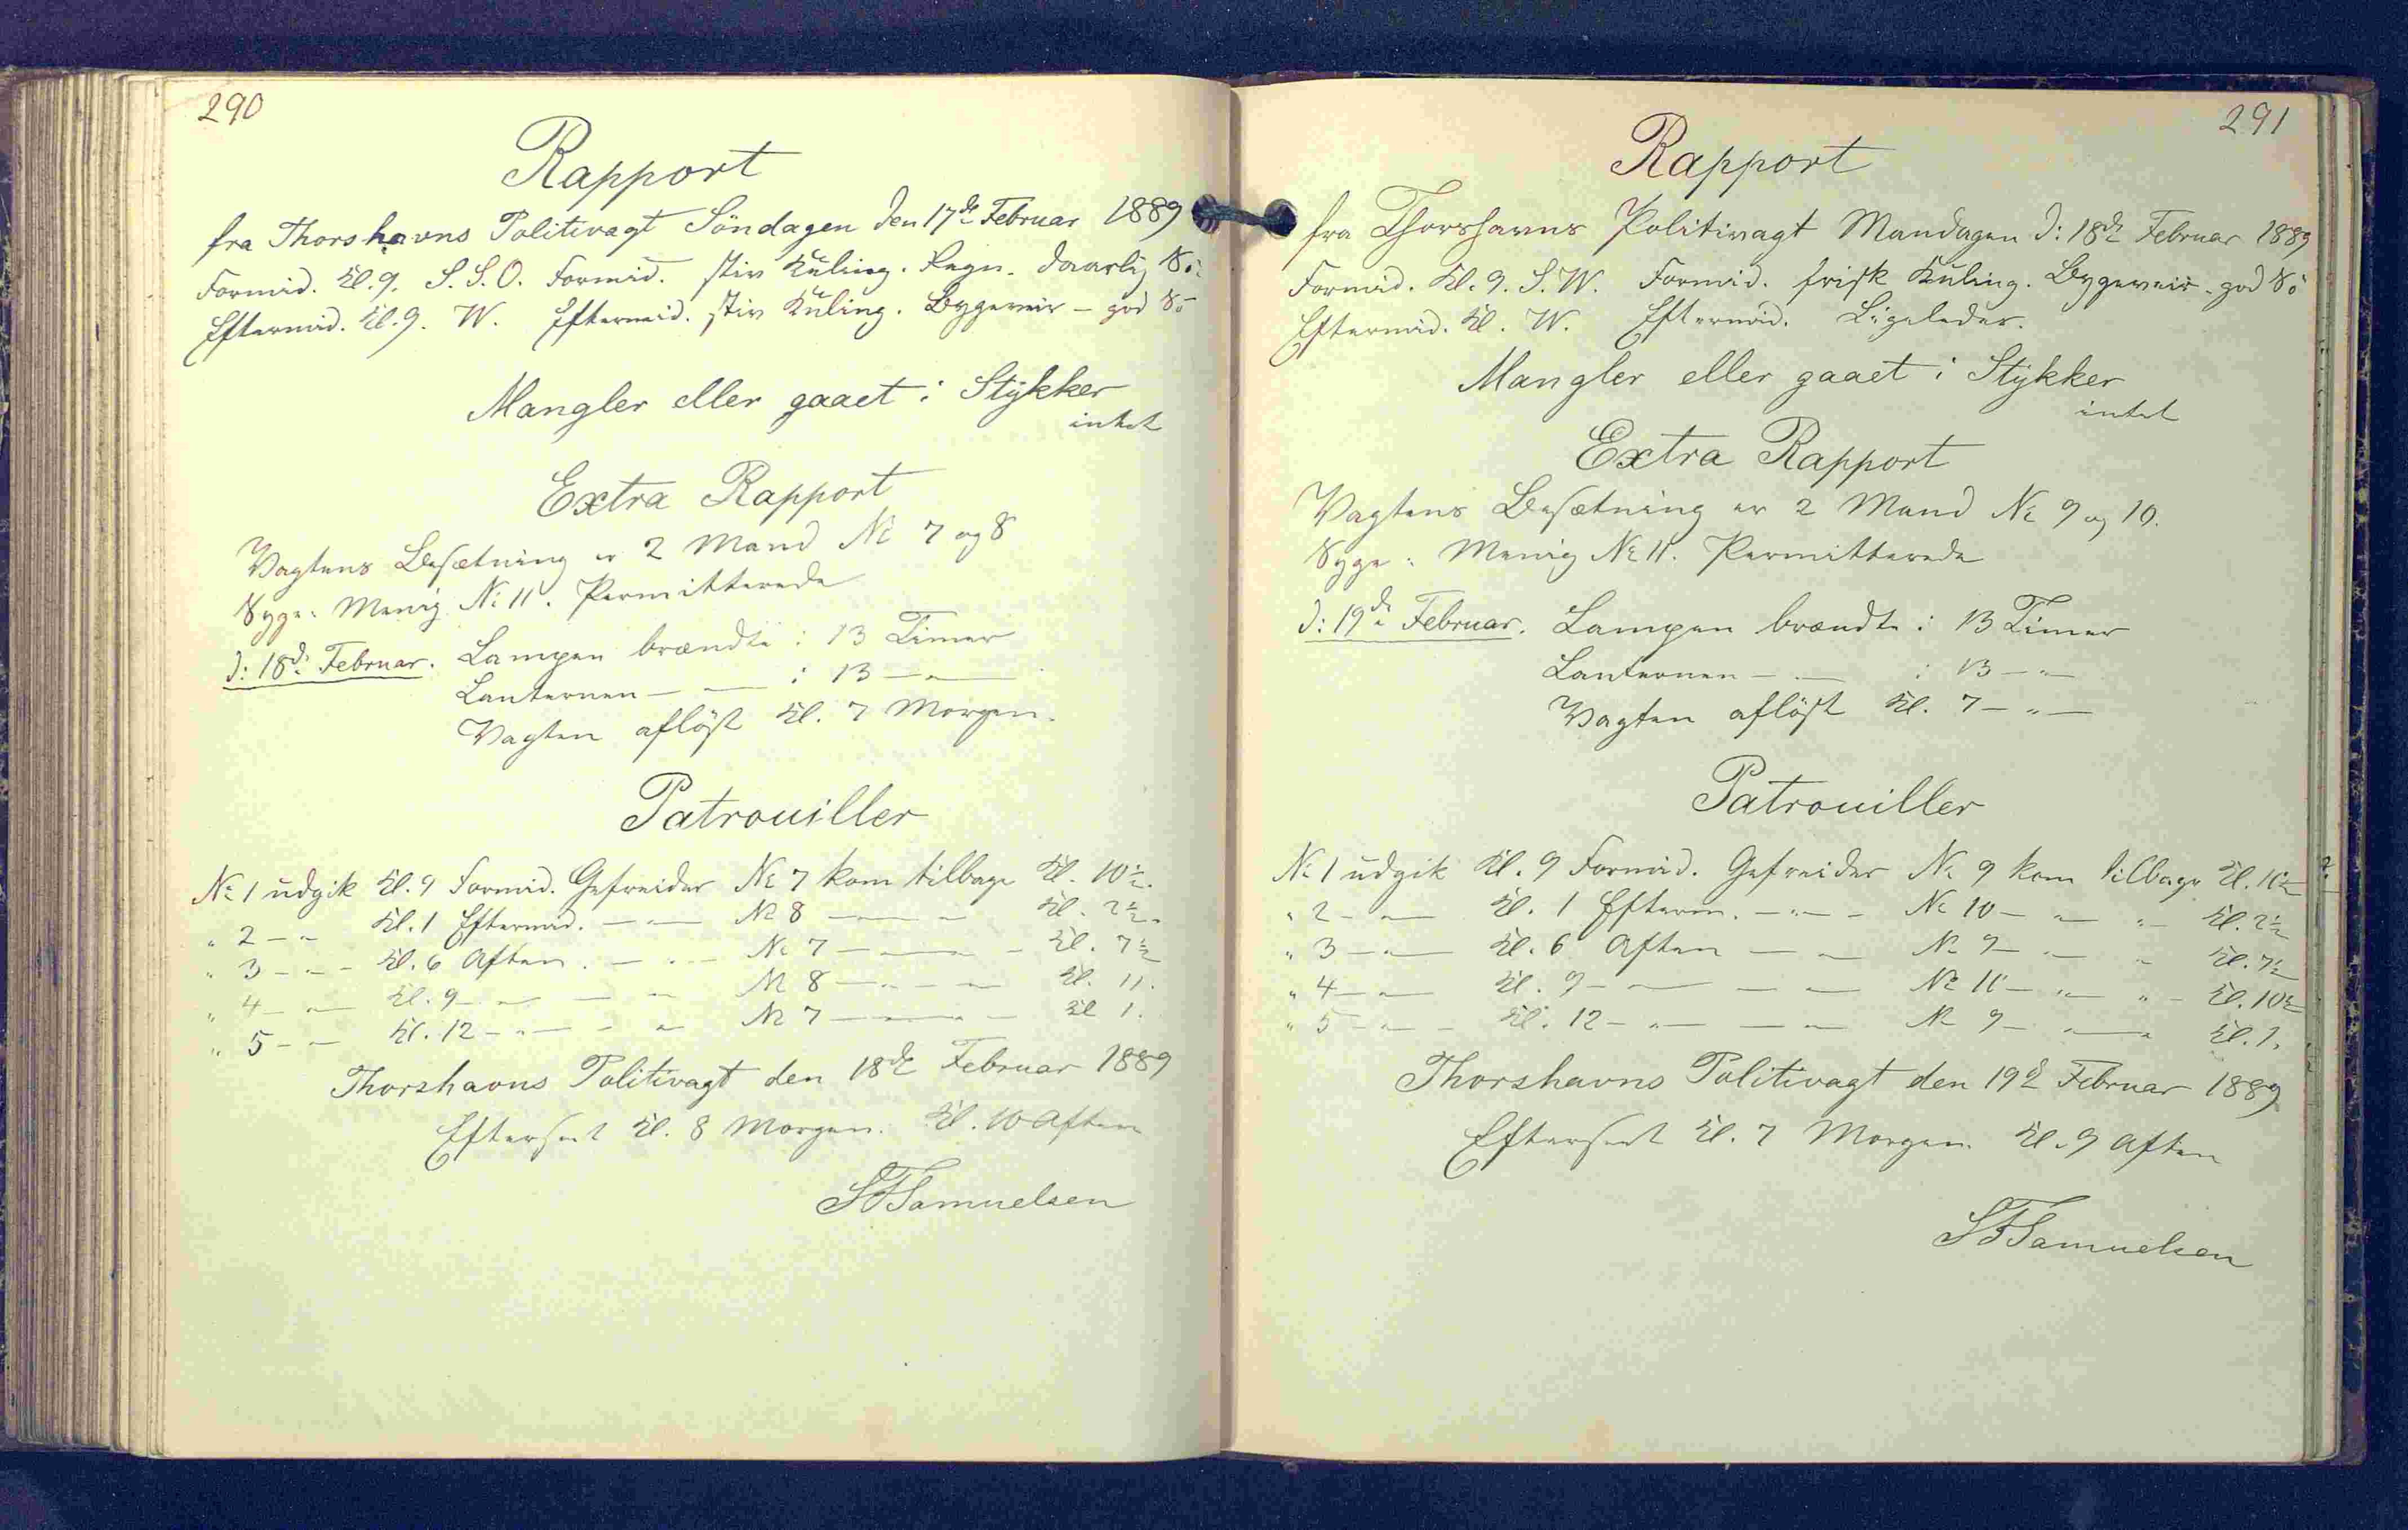 290
Rapport
fra Thorshavns Politivagt Söndagen den 17de Februar 1889
Formid. Kl. 9. S. S. O. Formid. stiv Kuling. Regn. daarlig Sö
Eftermid. Kl. 9. W. Eftermid. stiv Kuling. Bygeveir - god Sö
Mangler eller gaaet i Stykker
intet
Extra Rapport
Vagtens Besætning er 2 Mand No 7 og 8
Syge: Menig No 11. Permitterede
d: 18de Februar. Lampen brændte: 13 Timer
Lanternen — — : 13 — " —
Vagten aflöst Kl. 7 Morgen.
Patrouiller
No 1 udgik Kl. 9 Formid. Gefreider No 7 kom tilbage Kl. 10½.
" 2 - " Kl. 1 Eftermid. — " — No 8 — " — " — Kl. 2½.
" 3 - " - Kl. 6 Aften. — " — No 7 — " — " — Kl. 7½
" 4 - " — Kl. 9 — " — — " No 8 — " — " — Kl. 11.
" 5 - " — Kl. 12 — " — - " No 7 — " — " — Kl 1.
Thorshavns Politivagt den 18de Februar 1889
Efterseet Kl. 8 Morgen. Kl. 10 Aften
SFSamuelsen
291
Rapport
fra Thorshavns Politivagt Mandagen d: 18de Februar 1889
Formid. Kl. 9. S. W. Formid. frisk Kuling. Bygeveir. god Sö
Eftermid. Kl. W. Eftermid. Ligeledes.
Mangler eller gaaet i Stykker
intet
Extra Rapport
Vagtens Besætning er 2 Mand No 9 og 10.
Syge: Menig No 11. Permitterede
d: 19de Februar. Lampen brændte: 13 Timer
Lanternen — " — : 13 — " —
Vagten aflöst Kl. 7 — " —
Patrouiller
No 1 udgik Kl. 9 Formid. Gefreider No 9 kom tilbage Kl. 10½
" 2 - " — Kl. 1 Efterm. — " — No 10 — " — " — Kl. 2½
" 3 - " — Kl. 6 Aften — " — No 9 — " — " Kl. 7½
" 4 - " — Kl. 9 — " — — " — No 10 — " — " — Kl. 10½
" 5 - " — Kl. 12 — " — — " — No 9 — " — " Kl. 1.
Thorshavns Politivagt den 19de Februar 1889
Efterseet Kl. 7 Morgen. Kl. 9 Aften
SFSamuelsen